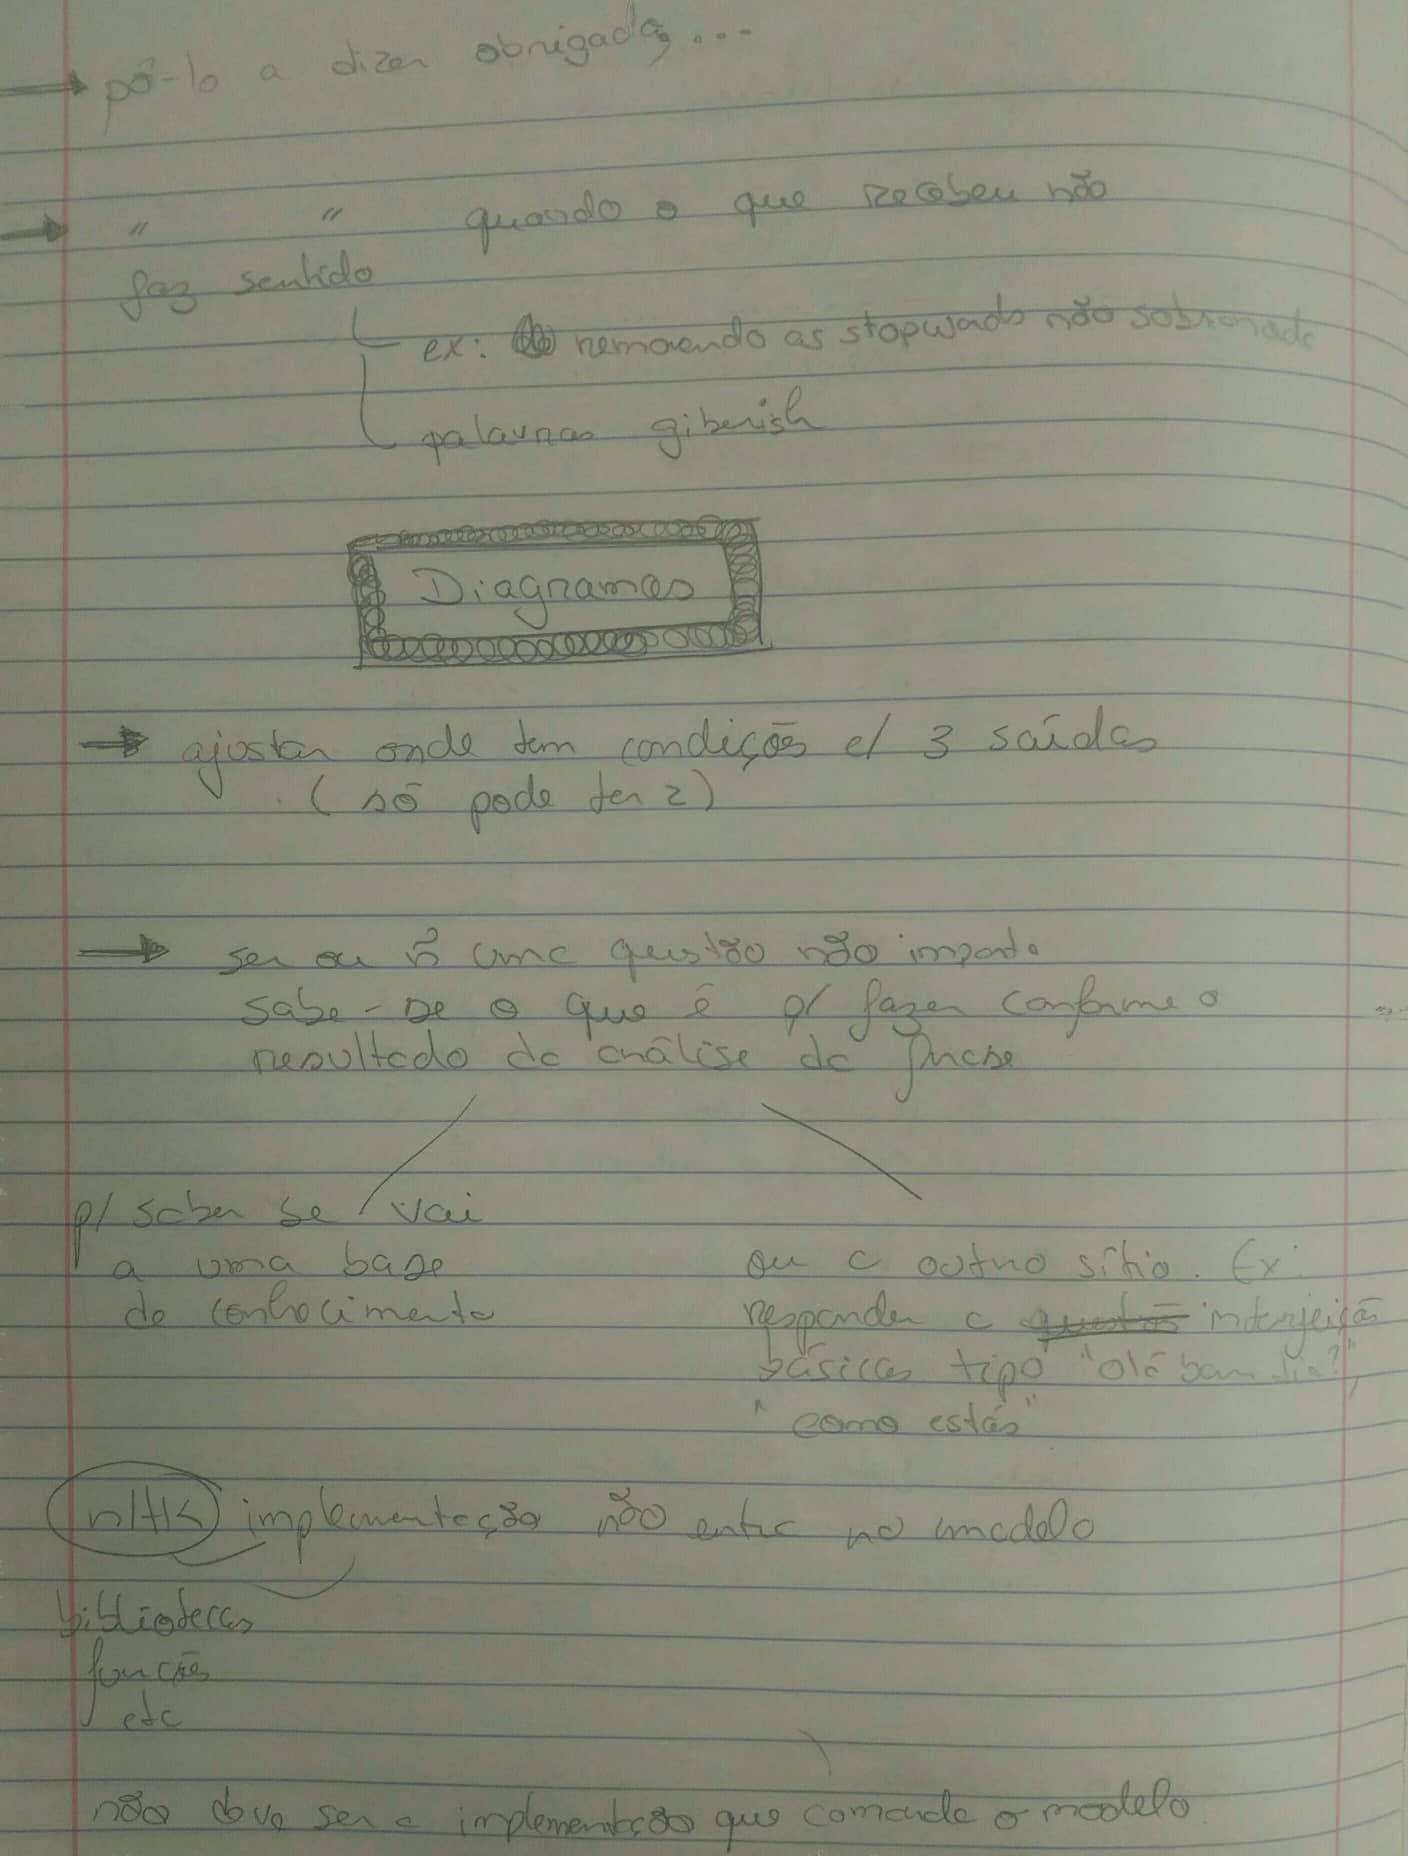 → pô-lo a dizer obrigada, ...
→ " " quando o que recebeu não
faz sentido
ex: removendo as stopwords não sobra nada
palavras giberish
Diagramas
→ ajustar onde tem condições c/ 3 saídas
(só pode ter 2)
→ ser ou ñ uma questão não importa
sabe-se o que é p/ fazer conforme o
resultado da análise da frase
p/ saber se vai
a uma base
de conhecimento
ou a outro sítio. Ex:
responder a questões interjeições
básicas tipo "olá bom dia?",
"como estás"
nltk implementação não entra no modelo
bibliotecas
funções
etc
não deve ser a implementação que comanda o modelo.